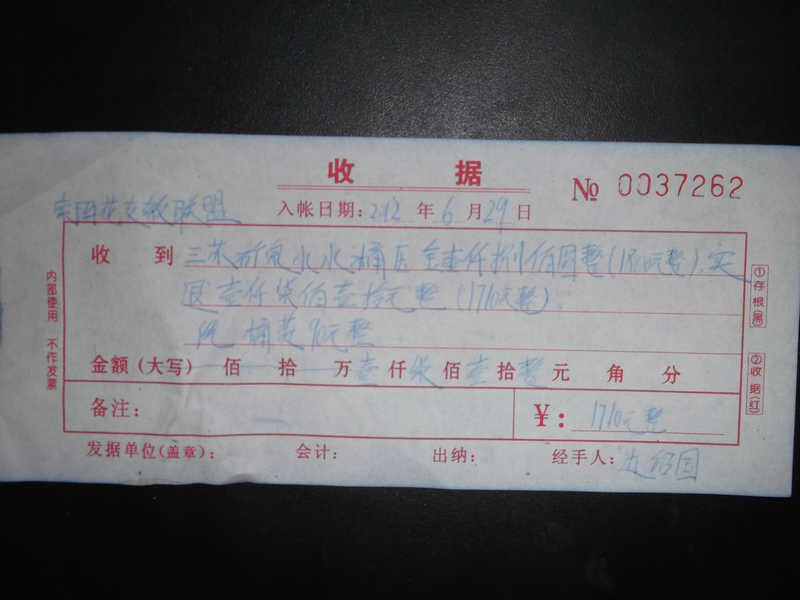 收 据
№ 0037262
联盟 入帐日期：2012 年 6 月 29 日
收 到 三苏矿泉水水桶压金壹仟捌佰圆整（1800元整）.实
退壹仟柒佰壹拾元整（1710元整）
金额（大写） 佰 拾 万 壹 仟 柒 佰 壹 拾 整 元 角 分
备注： ￥： 1710元整
发据单位（盖章）： 会计： 出纳： 经手人：
内部使用 不作发票
①存根(黑)
②收据(红)